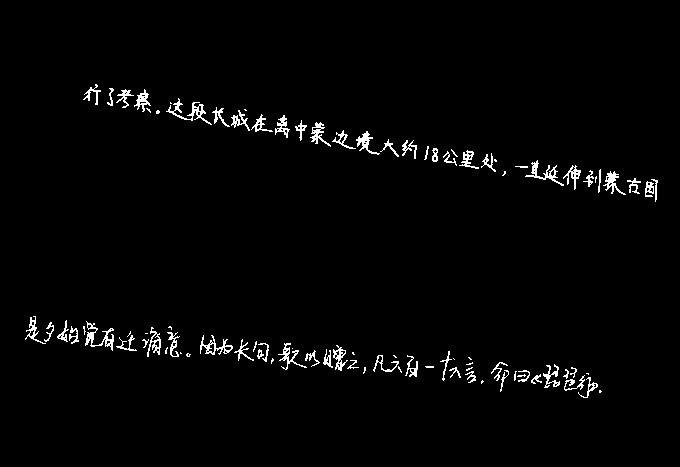 行了考察。这段长城在离中蒙边境大约18公里处，一直延伸到蒙古国
是夕始觉有迁谪意。因为长句，歌以赠之，凡六百一十六言，命曰《琵琶行》。